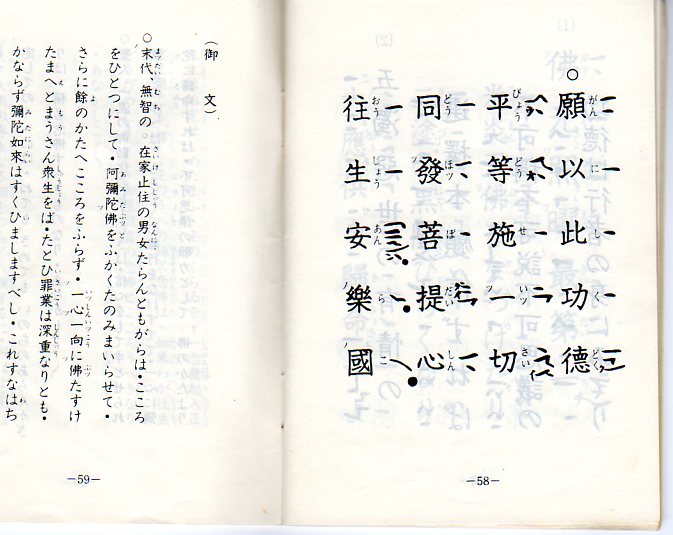 ○願以此功德
平等施一切
同發菩提心
往生安樂國
—58—
(御文)
○末代、無智の。在家止住の男女たらんともがらは・こころ
をひとつにして・阿彌陀佛をふかくたのみまいらせて・
さらに餘のかたへこころをふらず・一心一向に佛たすけ
たまへとまうさん衆生をば・たとひ罪業は深重なりとも・
かならず彌陀如來はすくひましますべし・これすなはち
—59—